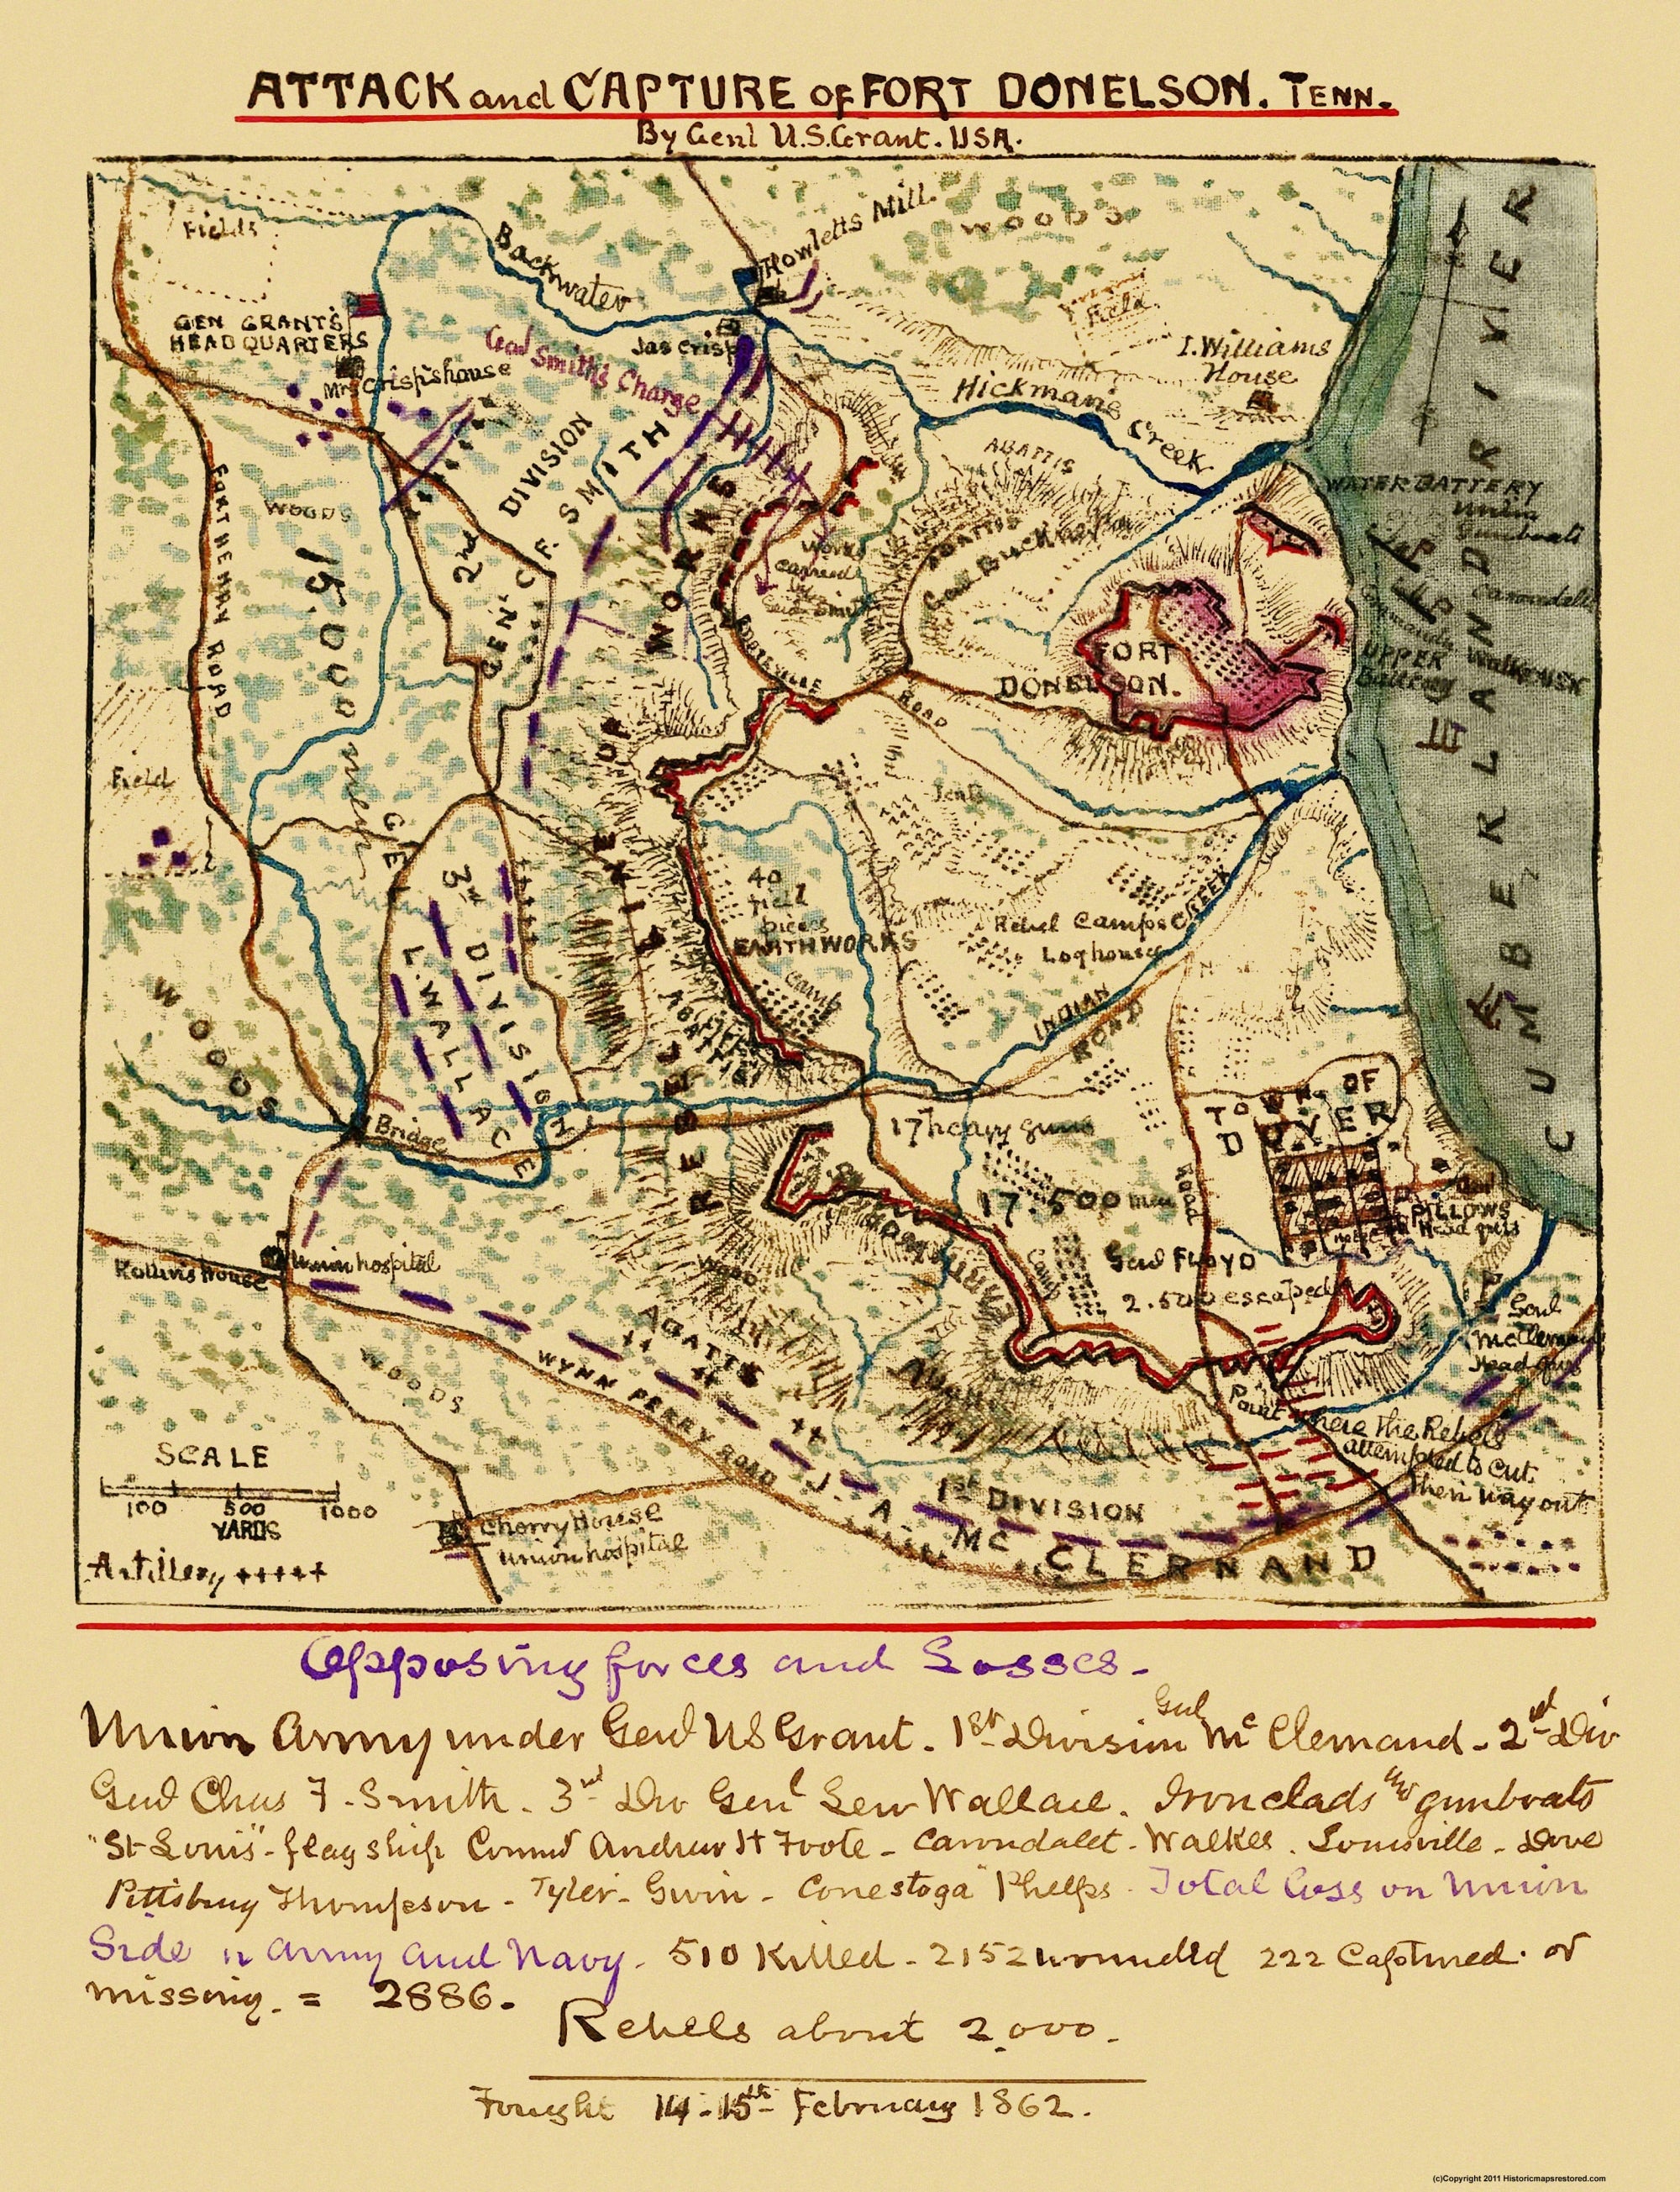 ATTACK and CAPTURE OF FORT DONELSON. TENN.
By Genl U.S. Grant. USA.
Fields
Backwater
Howletts Mill.
WOODS
RIVER
GEN GRANT'S
HEADQUARTERS
Mrs Crisp's house
Genl Smith's Charge
Jas Crisp
Field
I. Williams
House
Hickmans Creek
ABATTIS
2nd DIVISION
GEN. C. F. SMITH
WOODS
FORT HENRY ROAD
15.000 men
WORKS
Works
carried
by
Genl Smith
ABATTIS
Genl Buckner
WATER BATTERY
Union
Gunboats
Carondelet
UPPER
Battery
Walke USN
FORT
DONELSON.
CUMBERLAND
EDDYVILLE
ROAD
OF
Field
Tents
3rd DIVISION
GEN L. WALLACE
40
field
pieces
EARTHWORKS
Camp
Rebel Camps
Loghouses
INDIAN CREEK
ROAD
ABATTIS
WOODS
Bridge
TOWN OF
DOVER
17 heavy guns
17.500 men
Road
PILLOWS
Head qrs
Genl FLOYD
2.500 escaped
Camp
Rollins house
Union hospital
Wood
ABATTIS
WYNN FERRY ROAD
WOODS
Genl
McClernand
Head qrs
Point where the Rebels
attempted to cut
their way out
SCALE
100 500 1000
YARDS
Artillery +++++
Cherry House
Union hospital
1st DIVISION
J. A. MC CLERNAND
Opposing forces and Losses.
Union Army under Genl US Grant. 1st Division Genl McClernand - 2nd Div
Genl Chas F. Smith. 3rd Div Genl Lew Wallace. Ironclads and gunboats
"St Louis" - flag ship Comd Andrew H Foote - Carondalet - Walke . Louisville - Dove
Pittsburg Thompson - Tyler - Gwin - Conestoga" Phelps - Total loss on Union
Side in Army and Navy. 510 Killed - 2152 wounded 222 Captured. or
missing. = 2886.
Rebels about 2,000.
Fought 14-15th February 1862.
(c)Copyright 2011 Historicmapsrestored.com